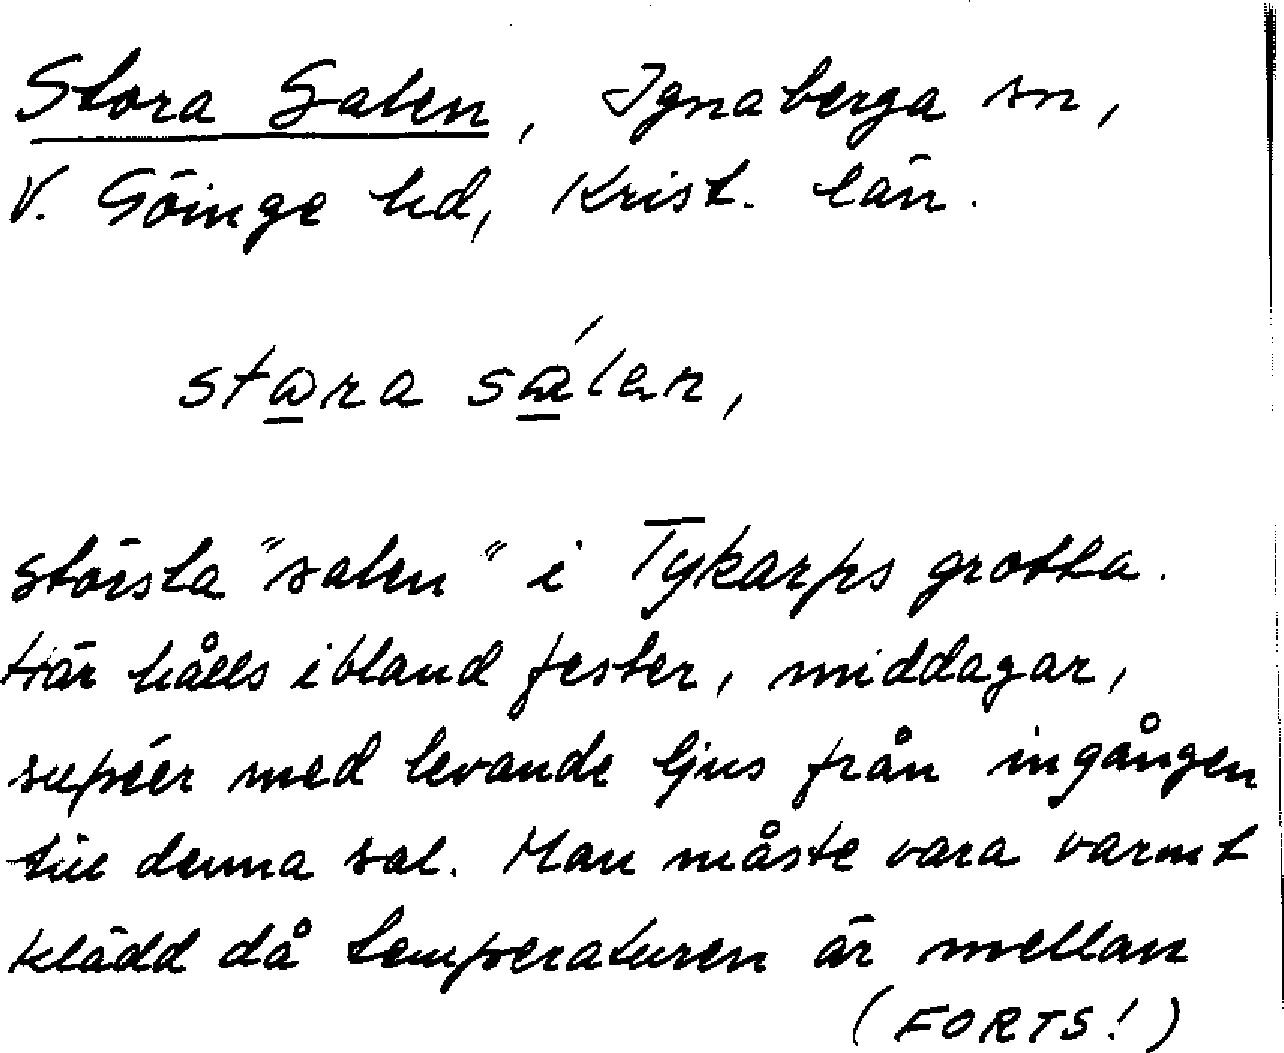 Stora Salen, Ignaberga sn,
V. Göinge hd, Krist. län.
stora sálen,
största "salen" i Tykarps grotta.
Här hålls ibland fester, middagar,
supéer med levande ljus från ingången
till denna sal. Man måste vara varmt
klädd då temperaturen är mellan
(FORTS!)